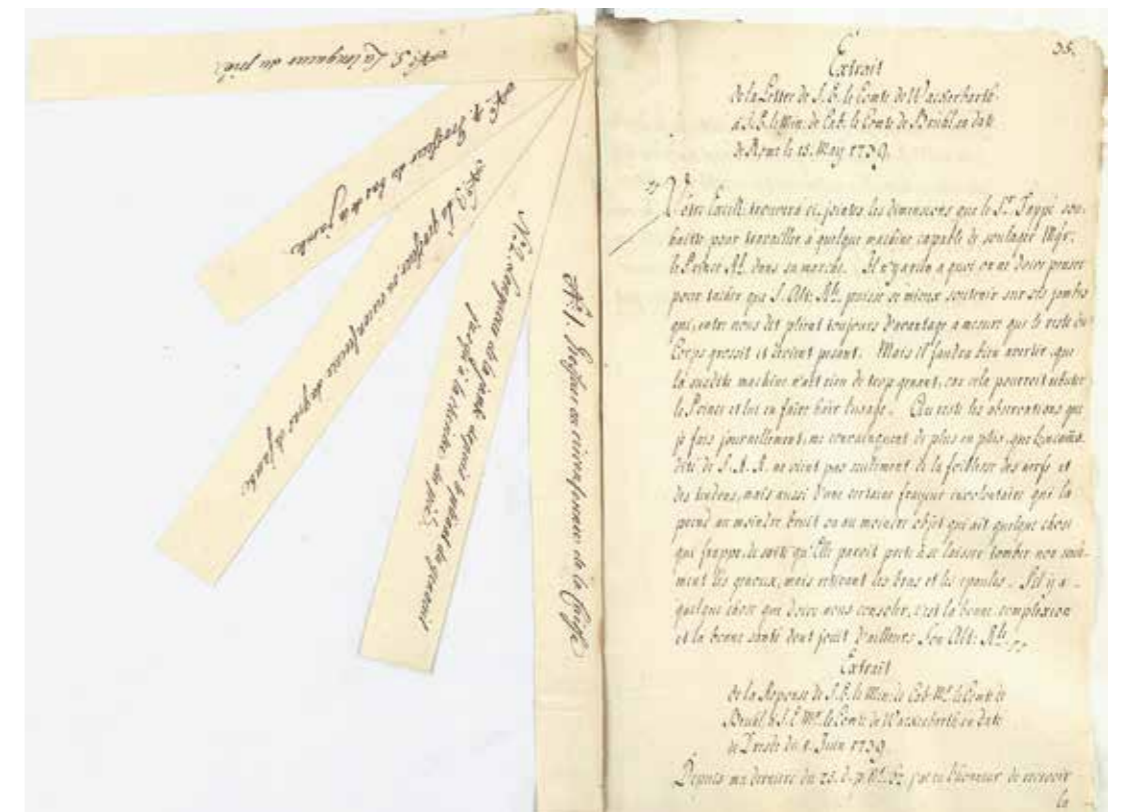 No. 5. La longueur du pié.
No. 4. Grosseur du bas de la jambe
No. 3. La grosseur ou circonference du gras de jambe
No. 2. Longueur de la jambe depuis le pliant du genouil
jusqu'à la du pié.
No. 1. Grosseur ou circonference de la Cuisse
35.
Extrait
de la Lettre de S. E. le Comte de Wackerbarth
à S. E. le Min. de Cab. le Comte de Brühl en date
de Rome le 15. May 1739.
Vôtre Excell. trouvera ci-jointes les dimensions que le Sr. sou-
haitte pour travailler à quelque machine capable de soulager Mgr.
le Prince Rl. dans sa marche. Il n'y a rien a quoi on ne doive penser
pour tacher que S. Alt. Rle. puisse se mieux soutenir sur ses jambes
qui, entre nous dit plient toujours d'avantage a mesure que le reste du
Corps grossit et devient pesant. Mais il faudra bien avertir, que
la susdite machine n'ait rien de trop genant, car cela pourroit rebuter
le Prince et lui en faire haïr l'usage. Au reste les observations que
je fais journellement, me convainquent de plus en plus, que l'incomo-
dité de S. A. R. ne vient pas seulement de la foiblesse des nerfs et
des tendons, mais aussi d'une certaine frayeur involontaire qui la
prend au moindre bruit ou au moindre objet qui ait quelque chose
qui frappe, de sorte qu'Elle paroit prete à se laisser tomber non seule-
ment les genoux, mais les bras et les epaules. S'il y a
quelque chose qui doive nous consoler, c'est la bonne complexion
et la bonne santé dont jouit d'ailleurs Son Alt. Rle.
Extrait
de la Reponse de S. E. le Min. de Cab. Mr. le Comte de
Brühl à S. E. Mr. le Comte de Wackerbarth en date
de Dresde du Juin 1739.
Depuis ma derniere du 25. d. p. j'ai eu l'honneur de recevoir
la